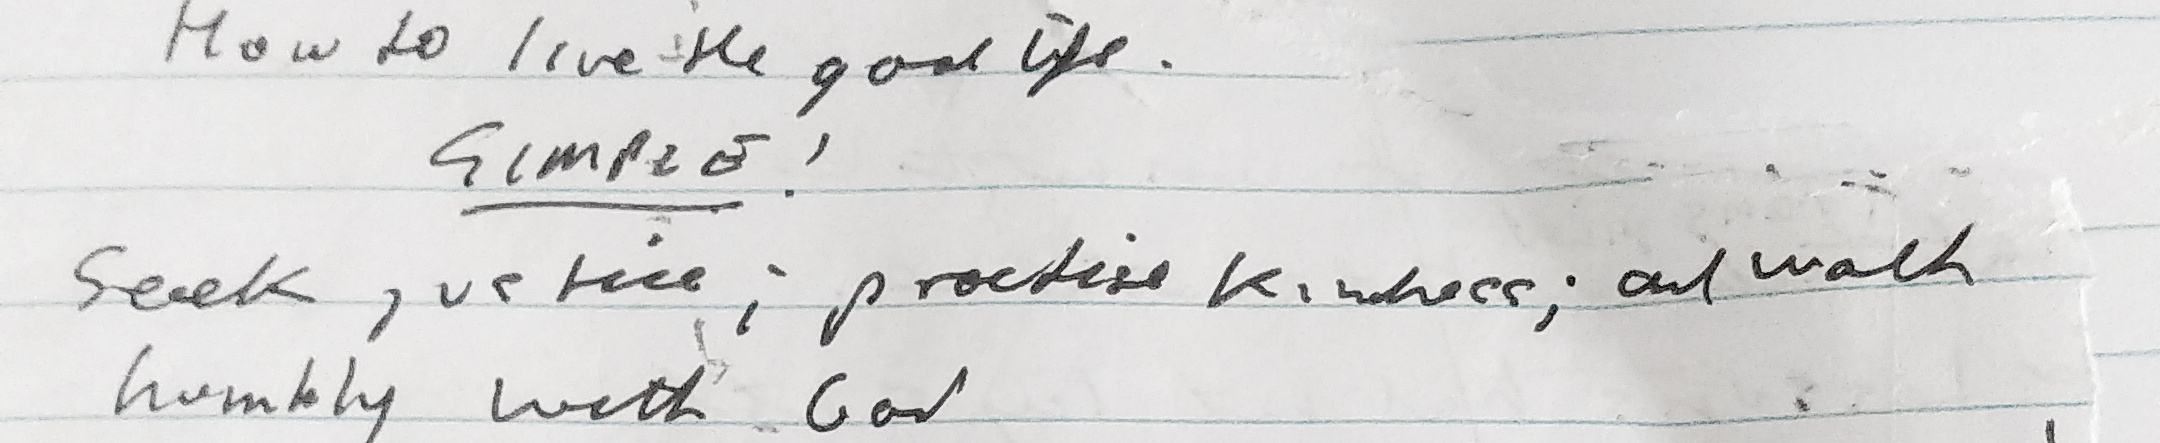 How to live the good life.
SIMPLE!
Seek justice; practise kindness; and walk
humbly with God